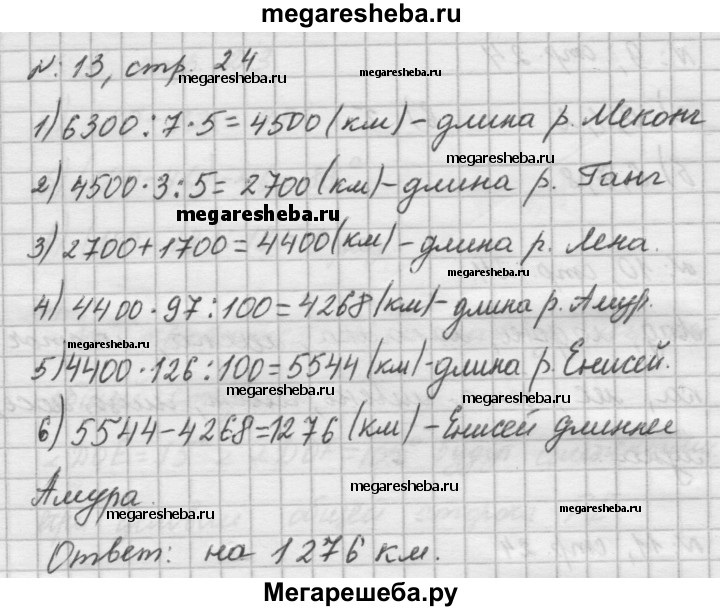 megaresheba.ru
N: 13, стр. 24
megaresheba.ru
megaresheba.ru
1) 6300 : 7 · 5 = 4500 (км) – длина р. Меконг
megaresheba.ru
2) 4500 · 3 : 5 = 2700 (км) – длина р. Ганг
megaresheba.ru
3) 2700 + 1700 = 4400 (км) – длина р. Лена.
megaresheba.ru
4) 4400 · 97 : 100 = 4268 (км) – длина р. Амур.
megaresheba.ru
megaresheba.ru
5) 4400 · 126 : 100 = 5544 (км) – длина р. Енисей.
megaresheba.ru
megaresheba.ru
6) 5544 – 4268 = 1276 (км) – Енисей длиннее
Амура.
megaresheba.ru
megaresheba.ru
Ответ: на 1276 км.
megaresheba.ru
Мегарешеба.ру